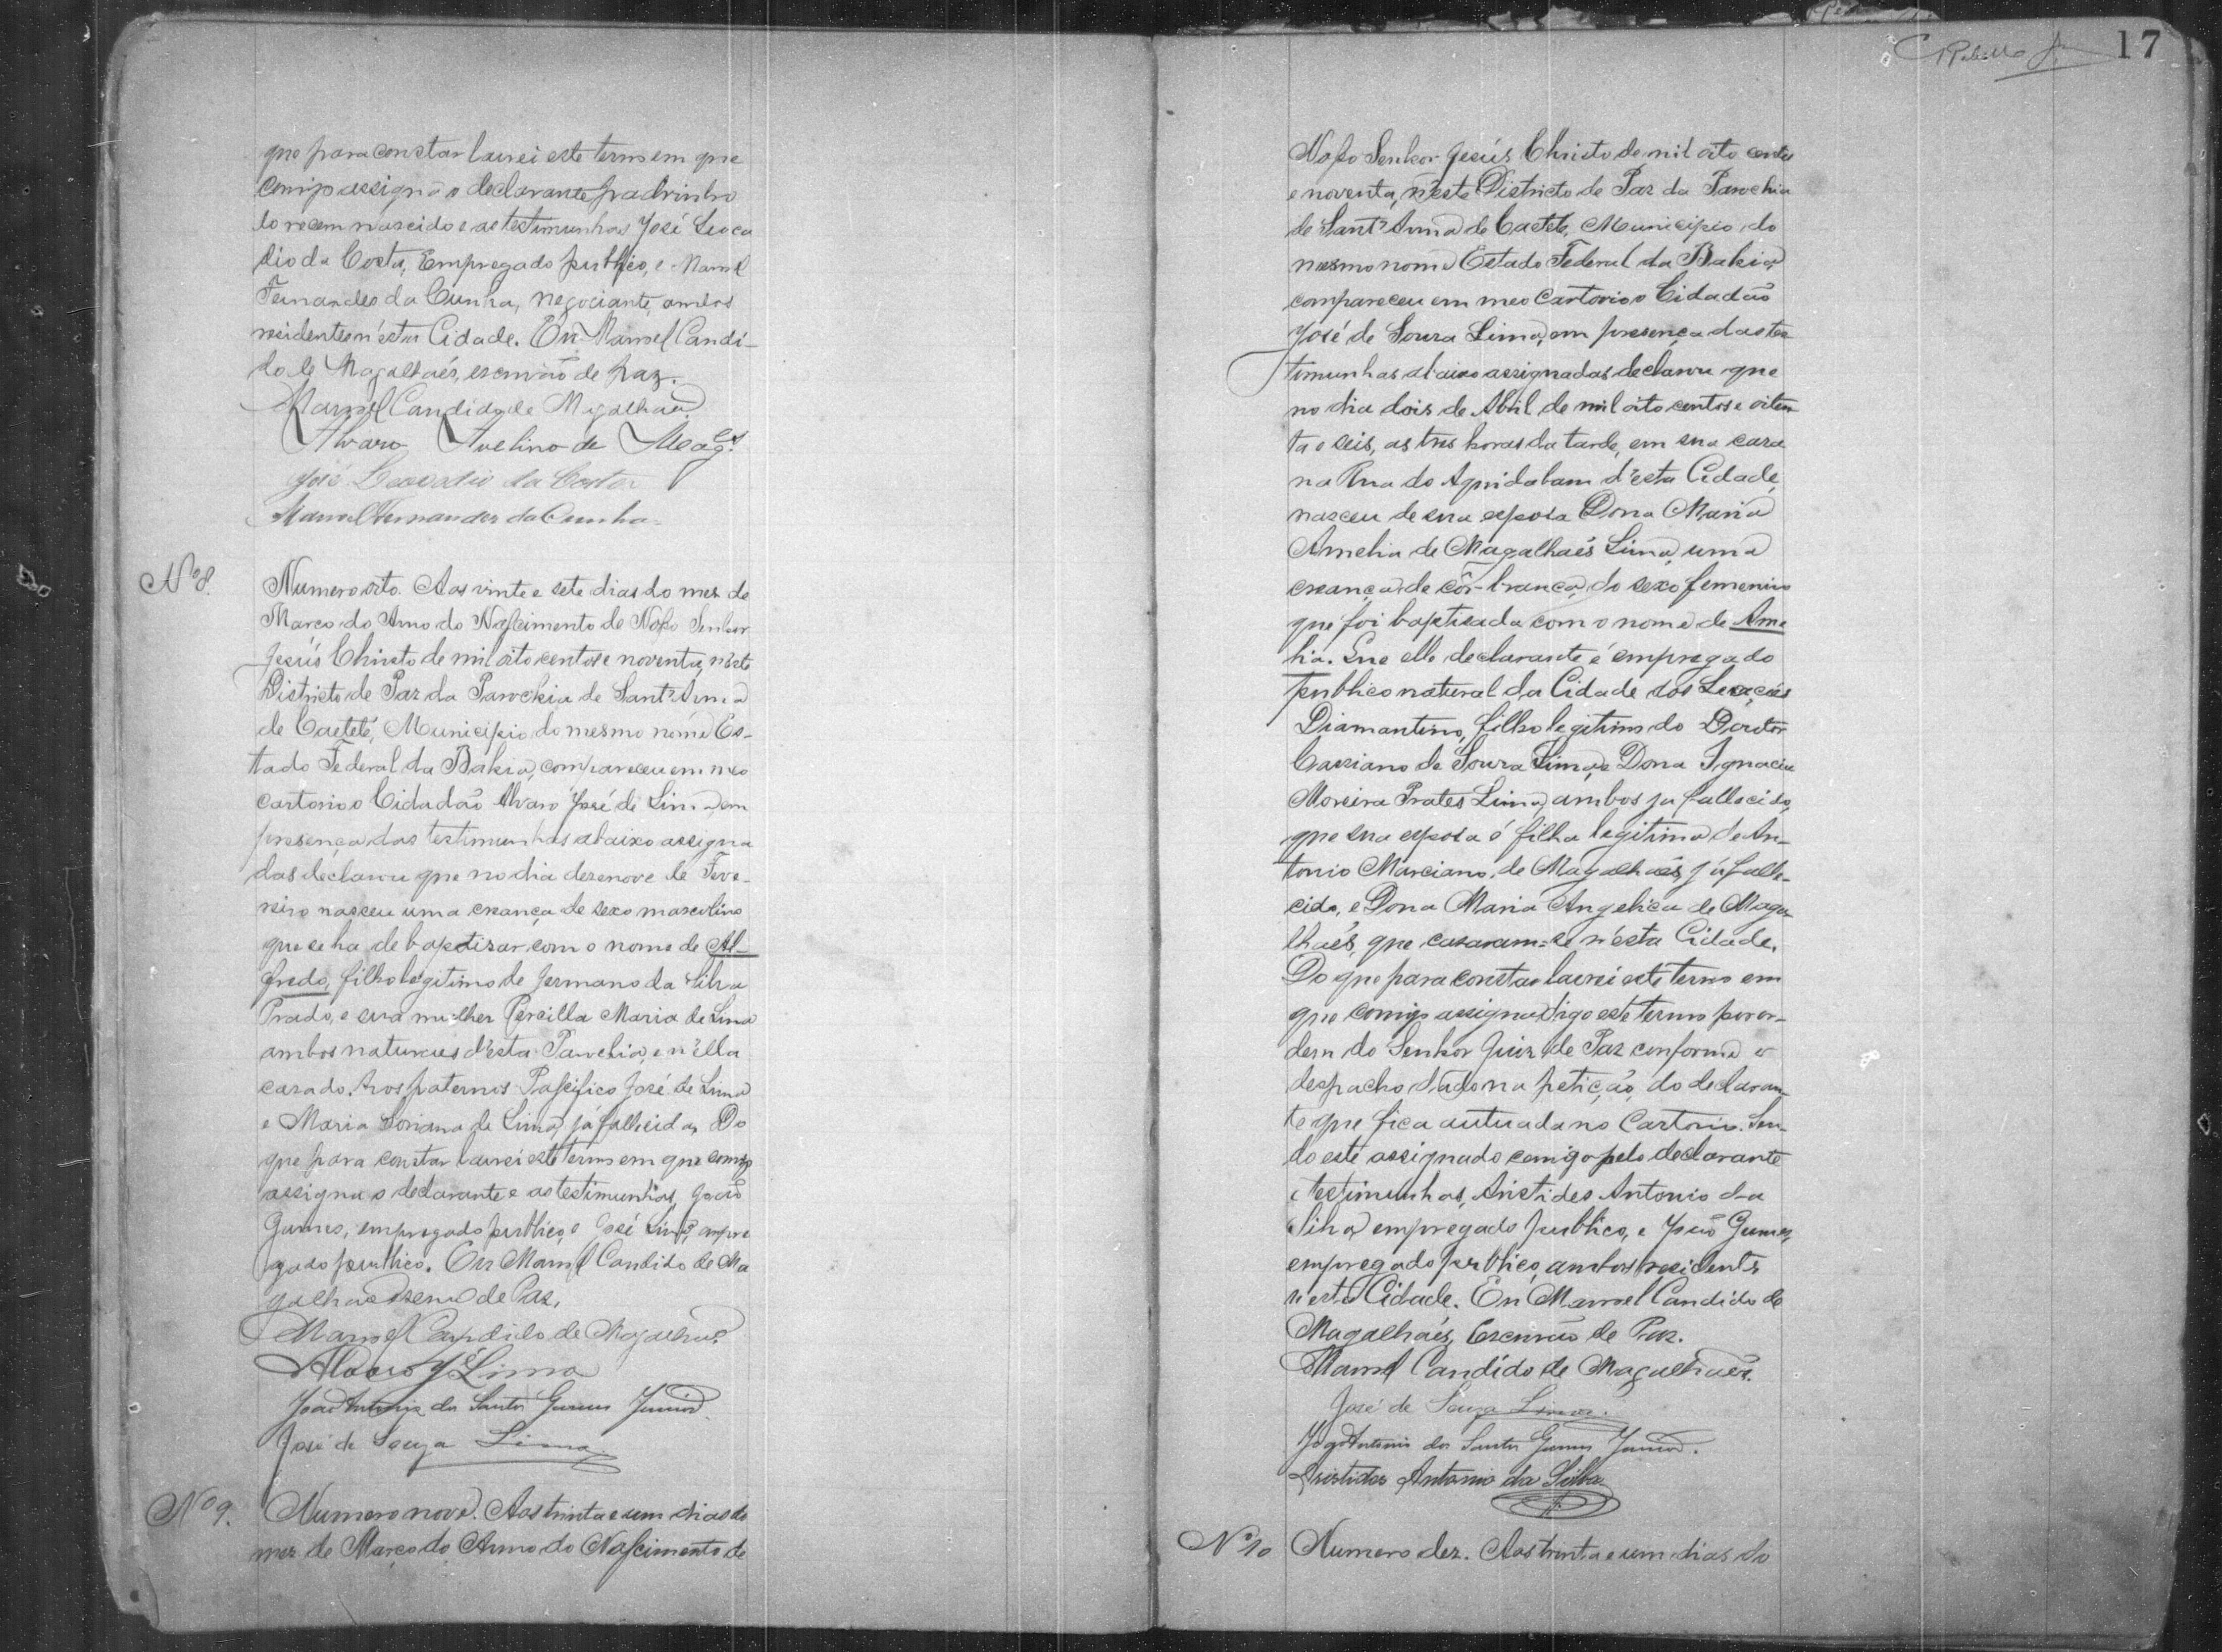 que para constar lavrei este termo em que
comigo assigna o declarante padrinho
do recem nascido e as testimunhas José Leoca
dio da Costa, Empregado publico, e Manoel
Fernandes da Cunha, negociante, ambos
residentes n'esta Cidade. Eu Manoel Candi-
do de Magalhaés, escrivão de paz.
Manoel Candido de Magalhães
Alvaro Avelino de Mag.es
José Leocadio da Costa
Manoel Fernandes da Cunha
Nº 8.
Numero oito. Aos vinte e sete dias do mes de
Março do Anno do Nascimento de Nosso Senhor
Jesús Christo de mil oito centos e noventa, n'este
Districto de Paz da Parochia de Sant'Anna
de Caeteté, Municipio do mesmo nome Es-
tado Federal da Bahia, compareceu em meo
cartorio o Cidadão Alvaro José de Lima, em
presença das testimunhas abaixo assigna
das declarou que no dia dezenove de Feve-
reiro nasceu uma creança de sexo mascolino
que se ha de baptizar com o nome de Al-
fredo, filho legitimo de Jermano da Silva
Prado, e sua mulher Percilla Maria de Lima
ambos naturaes d'esta Parochia, e n'ella
casado. Avos paternos Pascifico José de Lima
e Maria de Lima, já fallecidos. Do
que para constar lavrei este termo em que comigo
assigna o declarante e as testimunhas, João
Gumes, empregado publico, e José Lima, empre
gado publico. Eu Manoel Candido de Ma
galhaes escrivão de Paz.
Manoel Candido de Magalhães
Alvaro J. Lima
João Antonio dos Santos Gumes Junior.
José de Souza Lima.
Nº 9.
Numero nove. Aos trinta e um dias do
mez de Março do Anno do Nascimento de
17
Nosso Senhor Jesús Christo de mil oito centos
e noventa, n'este Districto de Paz da Parochia
de Sant'Anna de Caeteté, Municipio do
mesmo nome Estado Federal da Bahia,
compareceu em meo Cartorio o Cidadão
José de Souza Lima, em presença das tes
timunhas abaixo assignadas declarou que
no dia dois de Abril de mil oito centos e oiten
ta e seis, as tres horas da tarde, em sua casa
na Rua do Aquidabam d'esta Cidade,
nasceu de sua esposa Dona Maria
Amelia de Magalhaés Lima, uma
creança de côr branca, do sexo femenino
que foi baptisada com o nome de Ame
lia. Que elle declarante é empregado
publico natural da Cidade dos Lençóes
Diamantino, filho legitimo do Doutor
Cassiano de Souza Lima, e Dona Ignacia
Moreira Prates Lima, ambos ja fallecido,
que sua esposa é filha legitima de An-
tonio Marciano de Magalhaés, já falle-
cido, e Dona Maria Angelica de Maga
lhaés, que casaram-se n'esta Cidade.
Do que para constar lavrei este termo em
que comigo assigna digo este termo por or-
dem do Senhor Juiz de Paz conforme o
despacho dado na petição do declaran-
te que fica autuada no Cartorio. Sen-
do este assignado comigo pelo declarante
e testimunhas, Aristides Antonio da
Silva, empregado publico, e João Gumes,
empregado publico, ambos residentes
n'esta Cidade. Eu Manoel Candido de
Magalhaés, Escrivão de Paz.
Manoel Candido de Magalhaés.
José de Souza Lima.
João Antonio dos Santos Gumes Junior.
Aristides Antonio da Silva
Nº 10
Numero dez. Aos trinta e um dias do